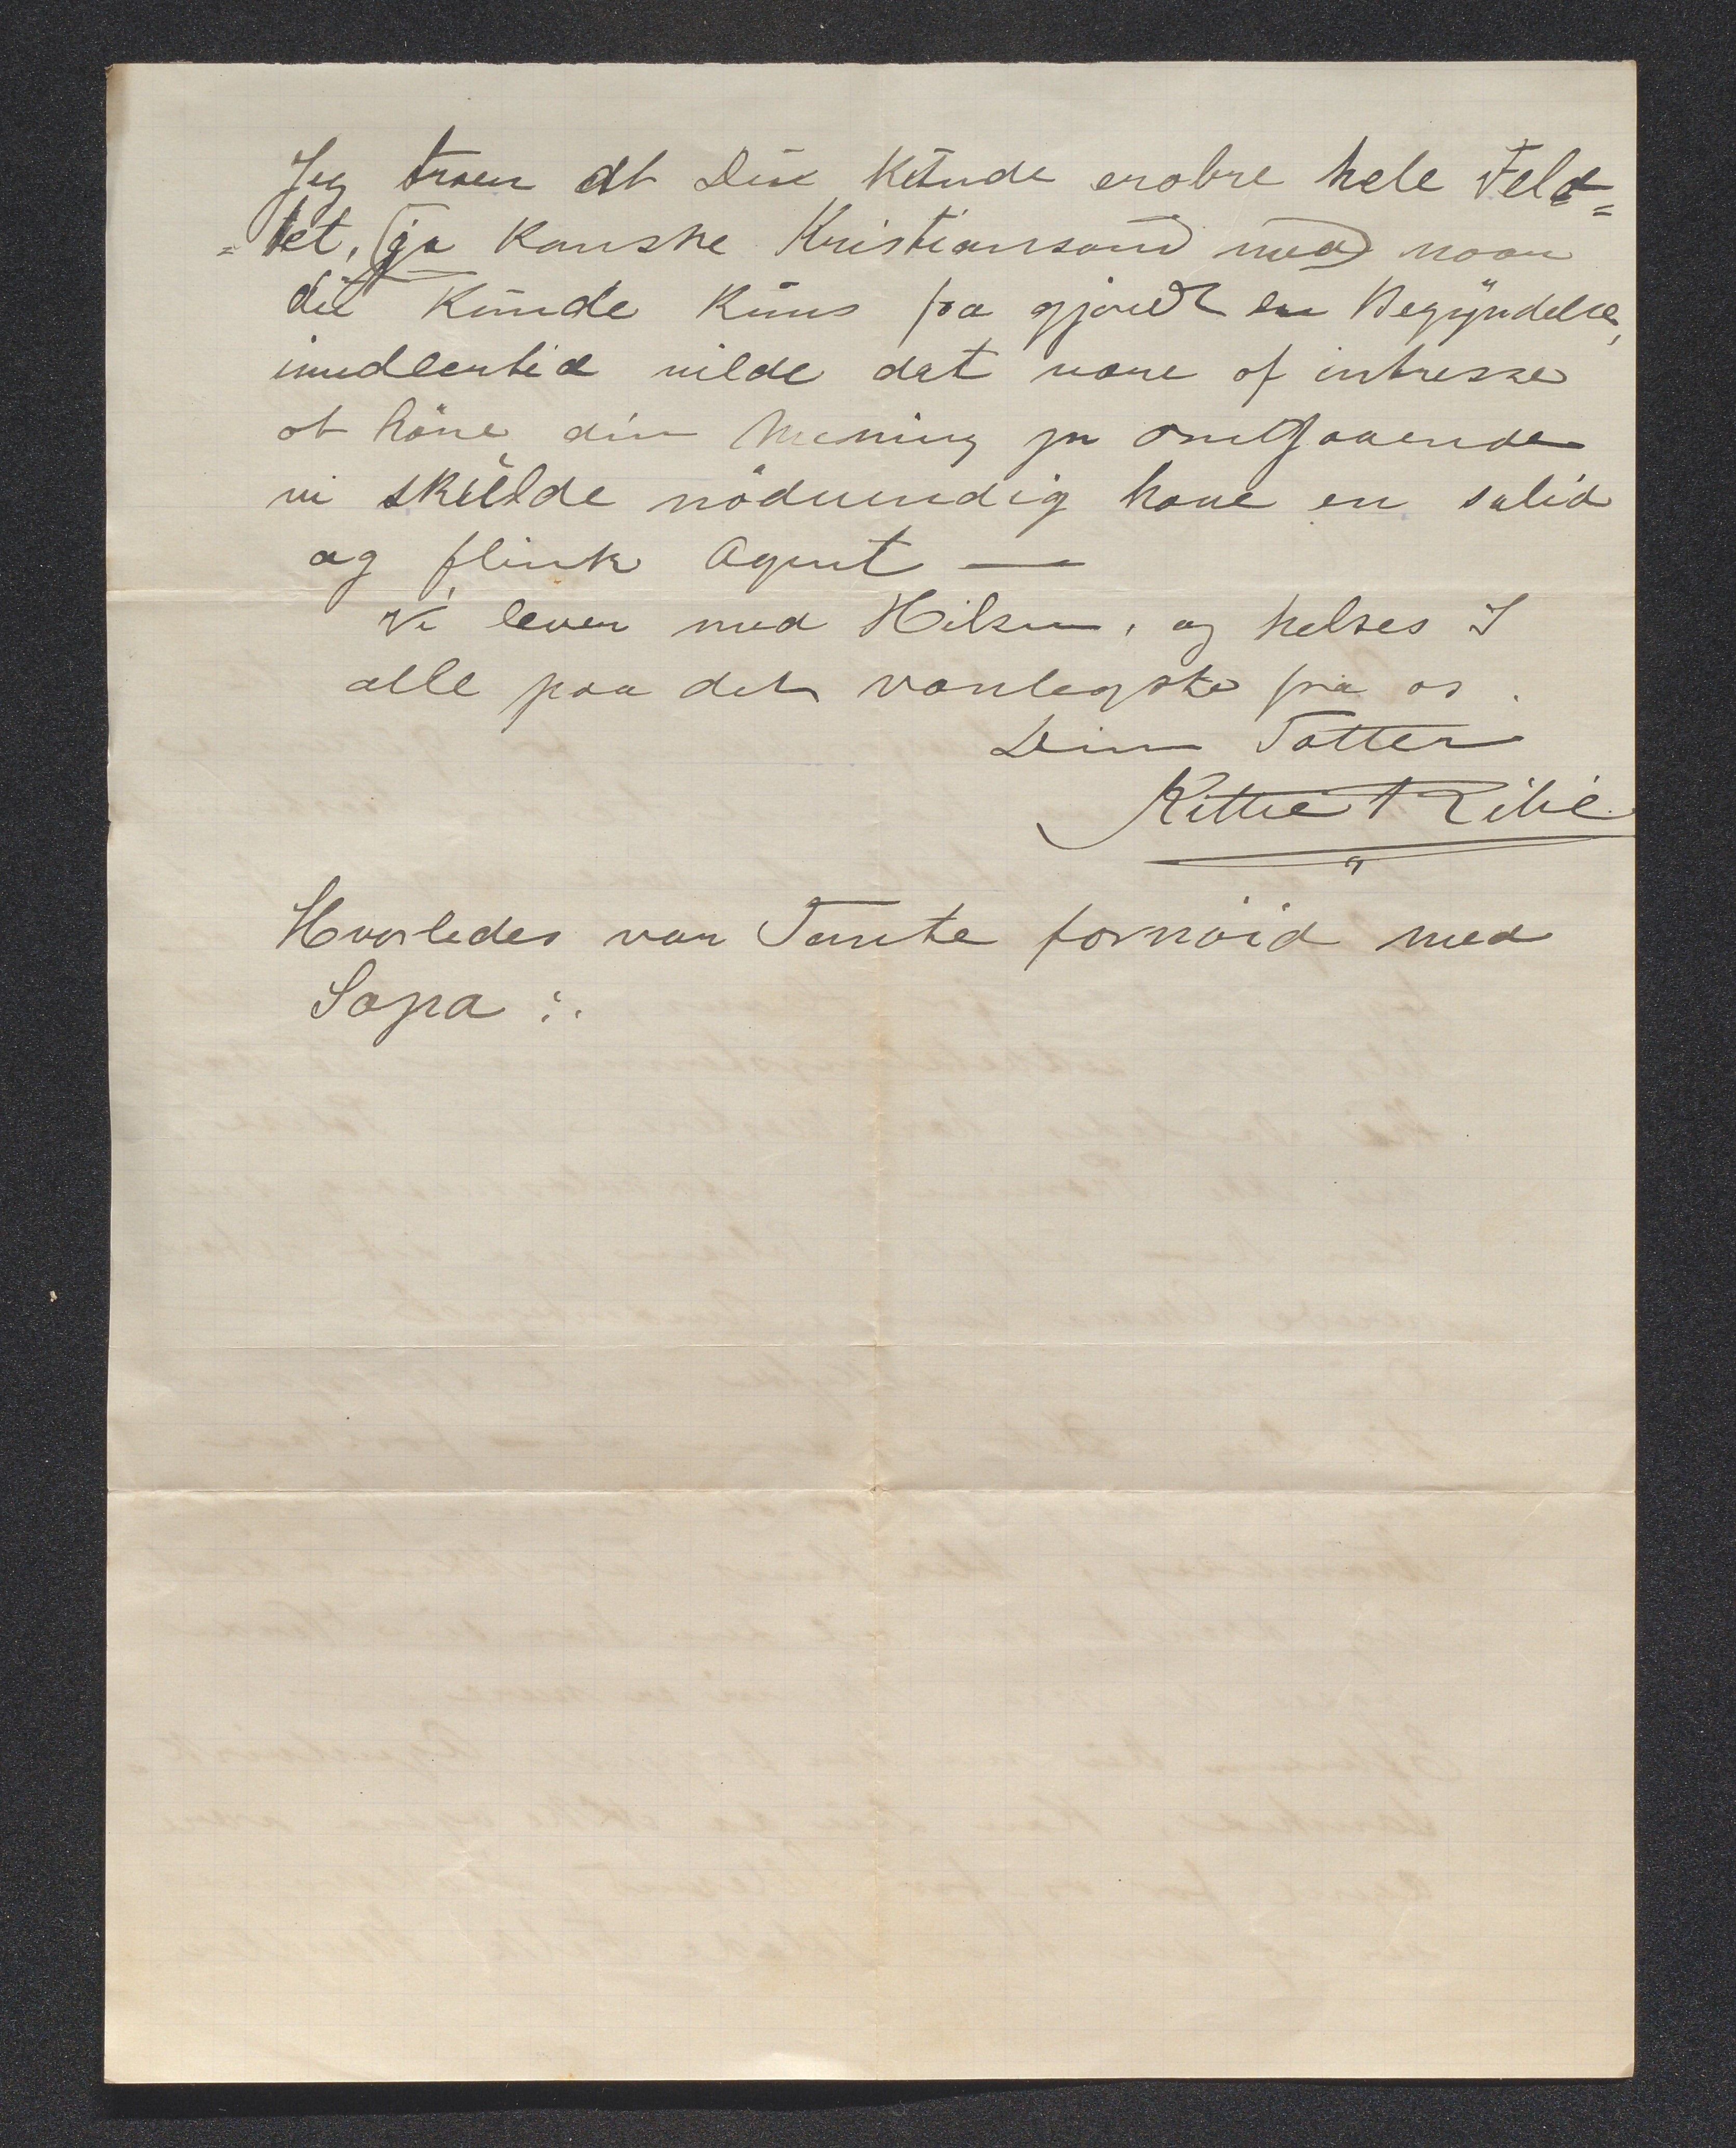 Jeg troer at Du kunde erobre hele Feld=
=tet, (ja kanske Kristiansand med) naar
du kunde kuns faa gjordt en Begyndelse,
imidlertid vilde det være af intresse
at høre din Mening pr omgaaende
vi skulde nødvendig have en solid
og flink Agent —
Vi lever med Hilsen, og helses I
alle paa det venligste fra os.
Din Fatter
Hvorledes var Tante fornøid med
Sopa :.